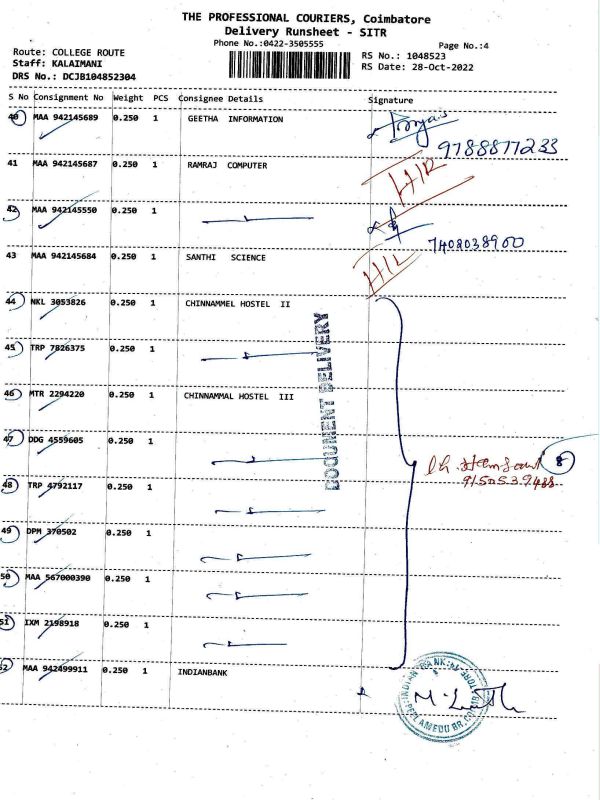 THE PROFESSIONAL COURIERS, Coimbatore
Delivery Runsheet - SITR
Phone No.:0422-3505555
Page No.:4
Route: COLLEGE ROUTE
RS No.: 1048523
Staff: KALAIMANI
RS Date: 28-Oct-2022
DRS No.: DCJB104852304
S No Consignment No Weight PCS Consignee Details Signature
40 MAA 942145689 0.250 1 GEETHA INFORMATION
9788877233
41 MAA 942145687 0.250 1 RAMRAJ COMPUTER
42 MAA 942145550 0.250 1
7408038900
43 MAA 942145684 0.250 1 SANTHI SCIENCE
44 NKL 3053826 0.250 1 CHINNAMMEL HOSTEL II
45 TRP 7826375 0.250 1
46 MTR 2294220 0.250 1 CHINNAMMAL HOSTEL III
DOCUMENT DELIVERY
47 DDG 4559605 0.250 1
8
48 TRP 4792117 0.250 1
49 DPM 370502 0.250 1
50 MAA 567000390 0.250 1
51 IXM 2198918 0.250 1
52 MAA 942499911 0.250 1 INDIANBANK